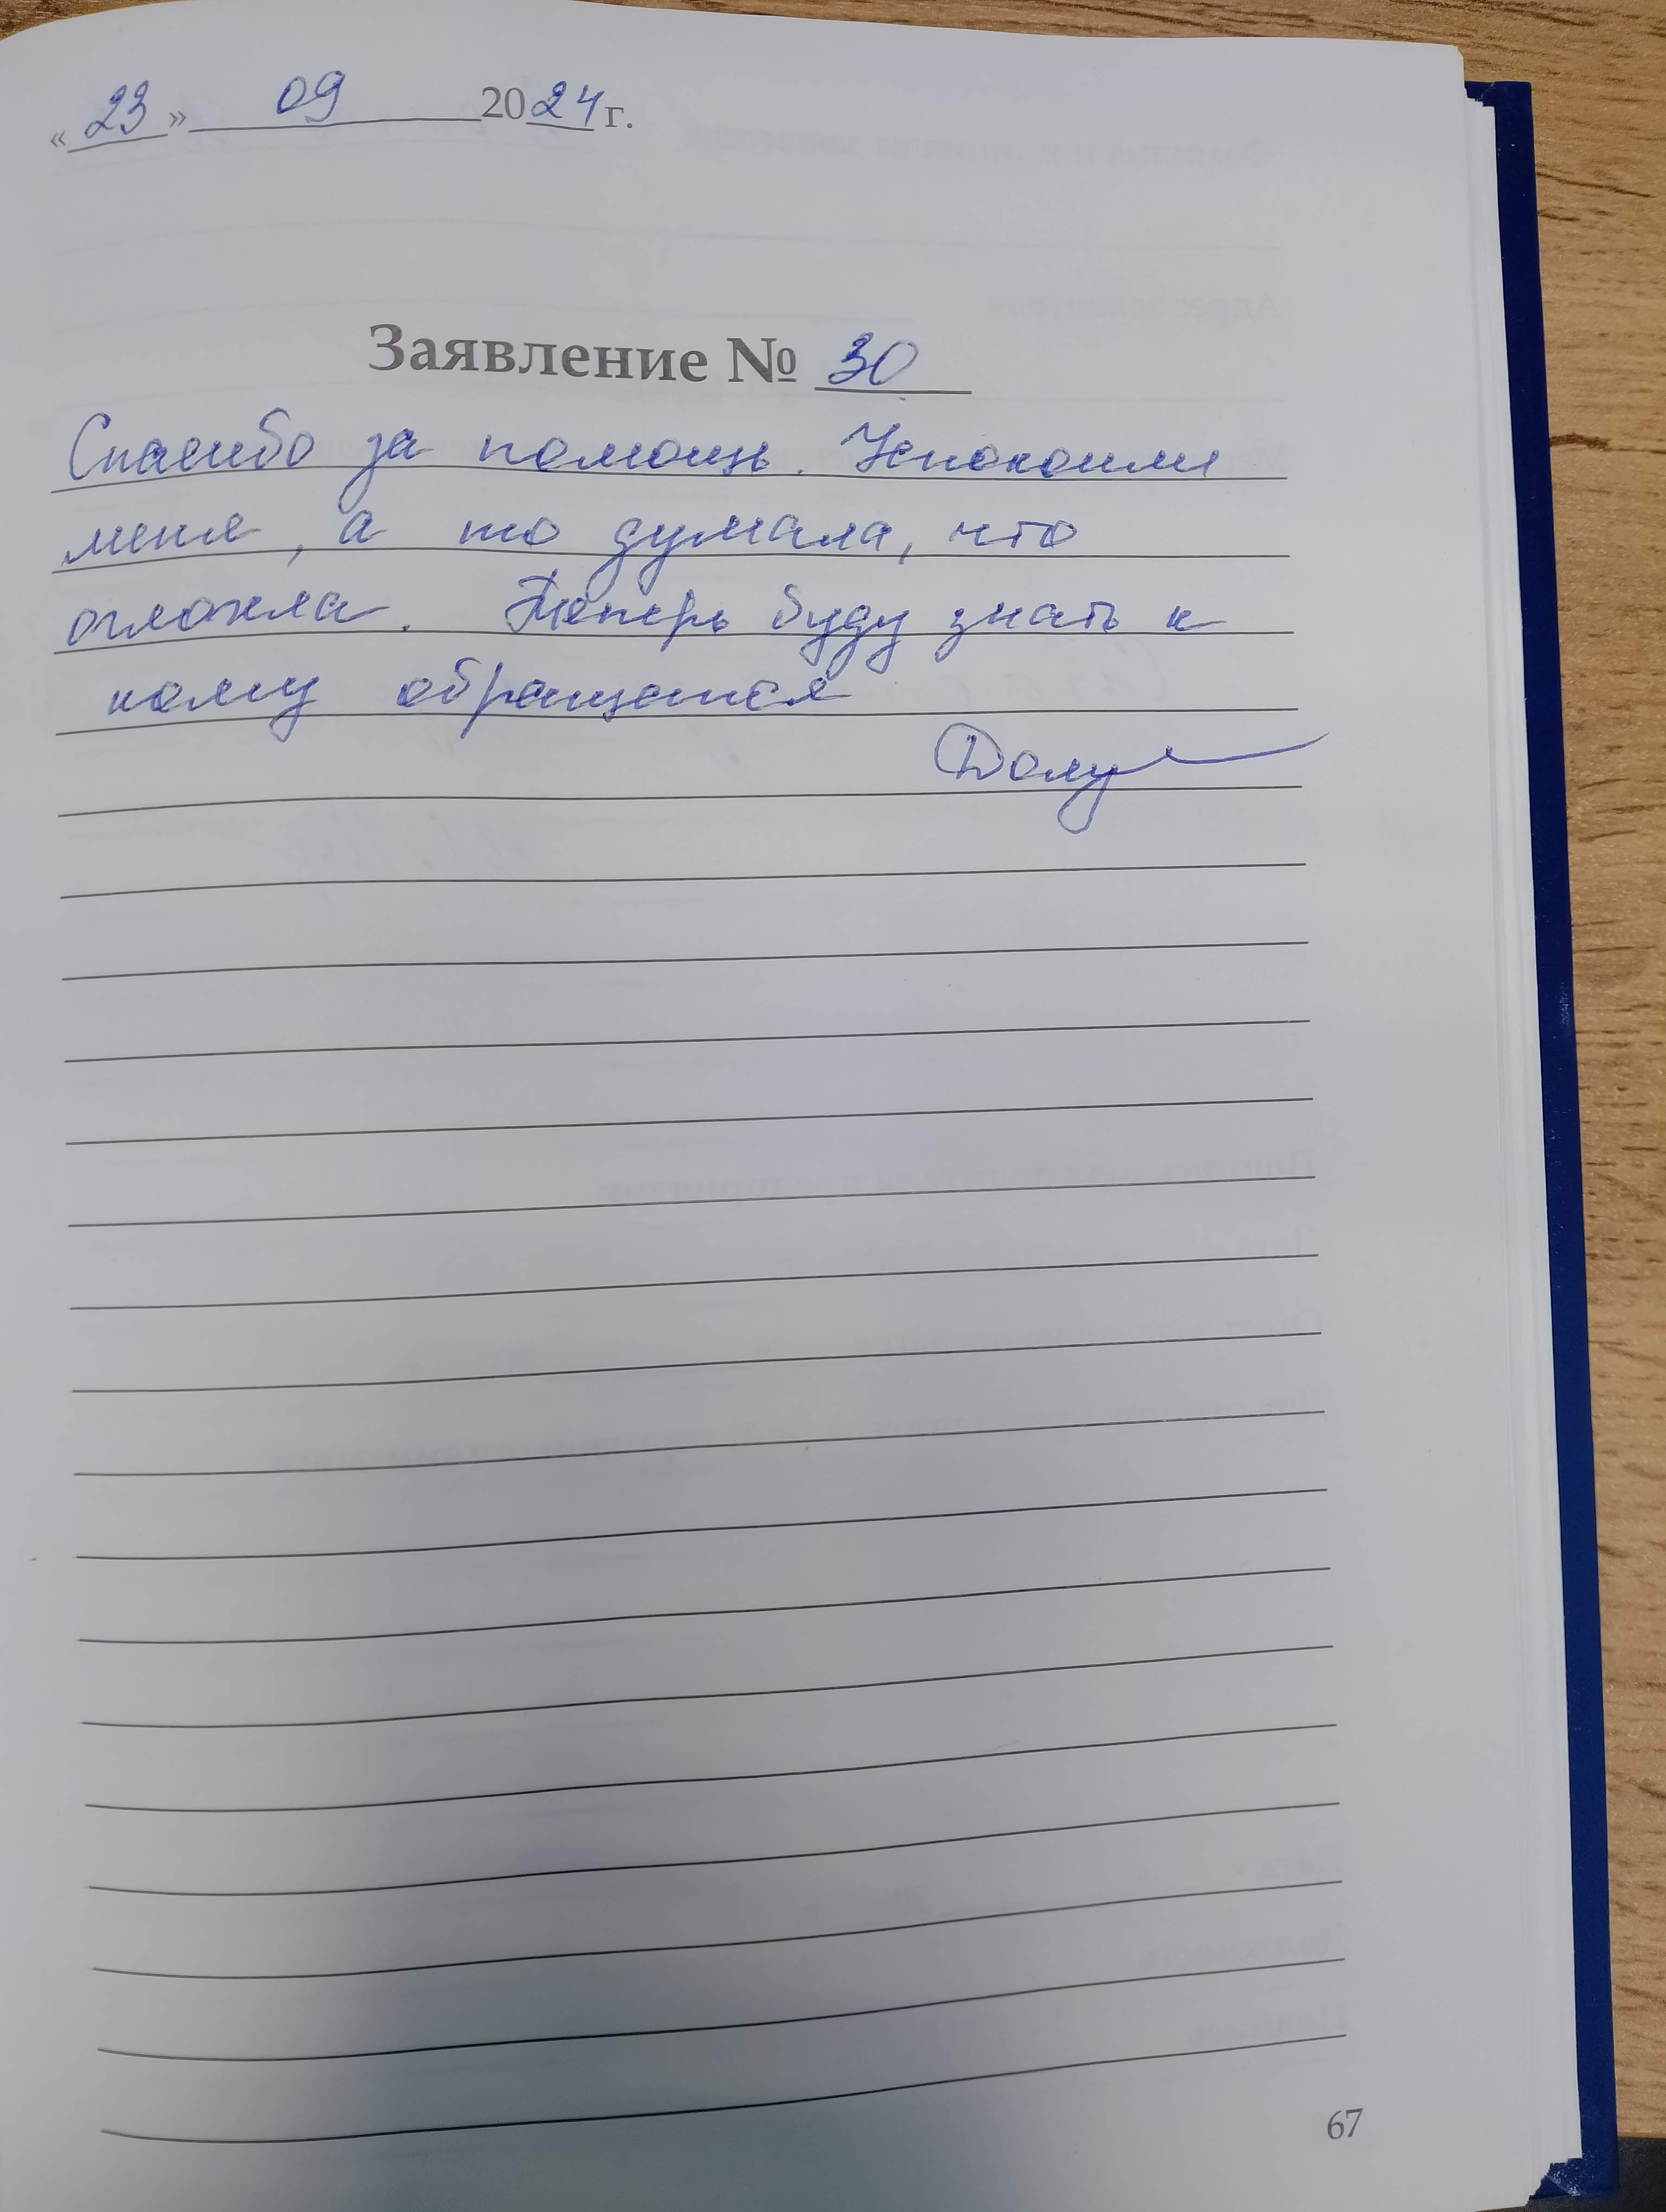 «23» 09 2024 г.
Заявление № 30
Спасибо за помощь. Успокоили
меня, а то думала, что
оглохла. Теперь буду знать к
кому обращатся
67